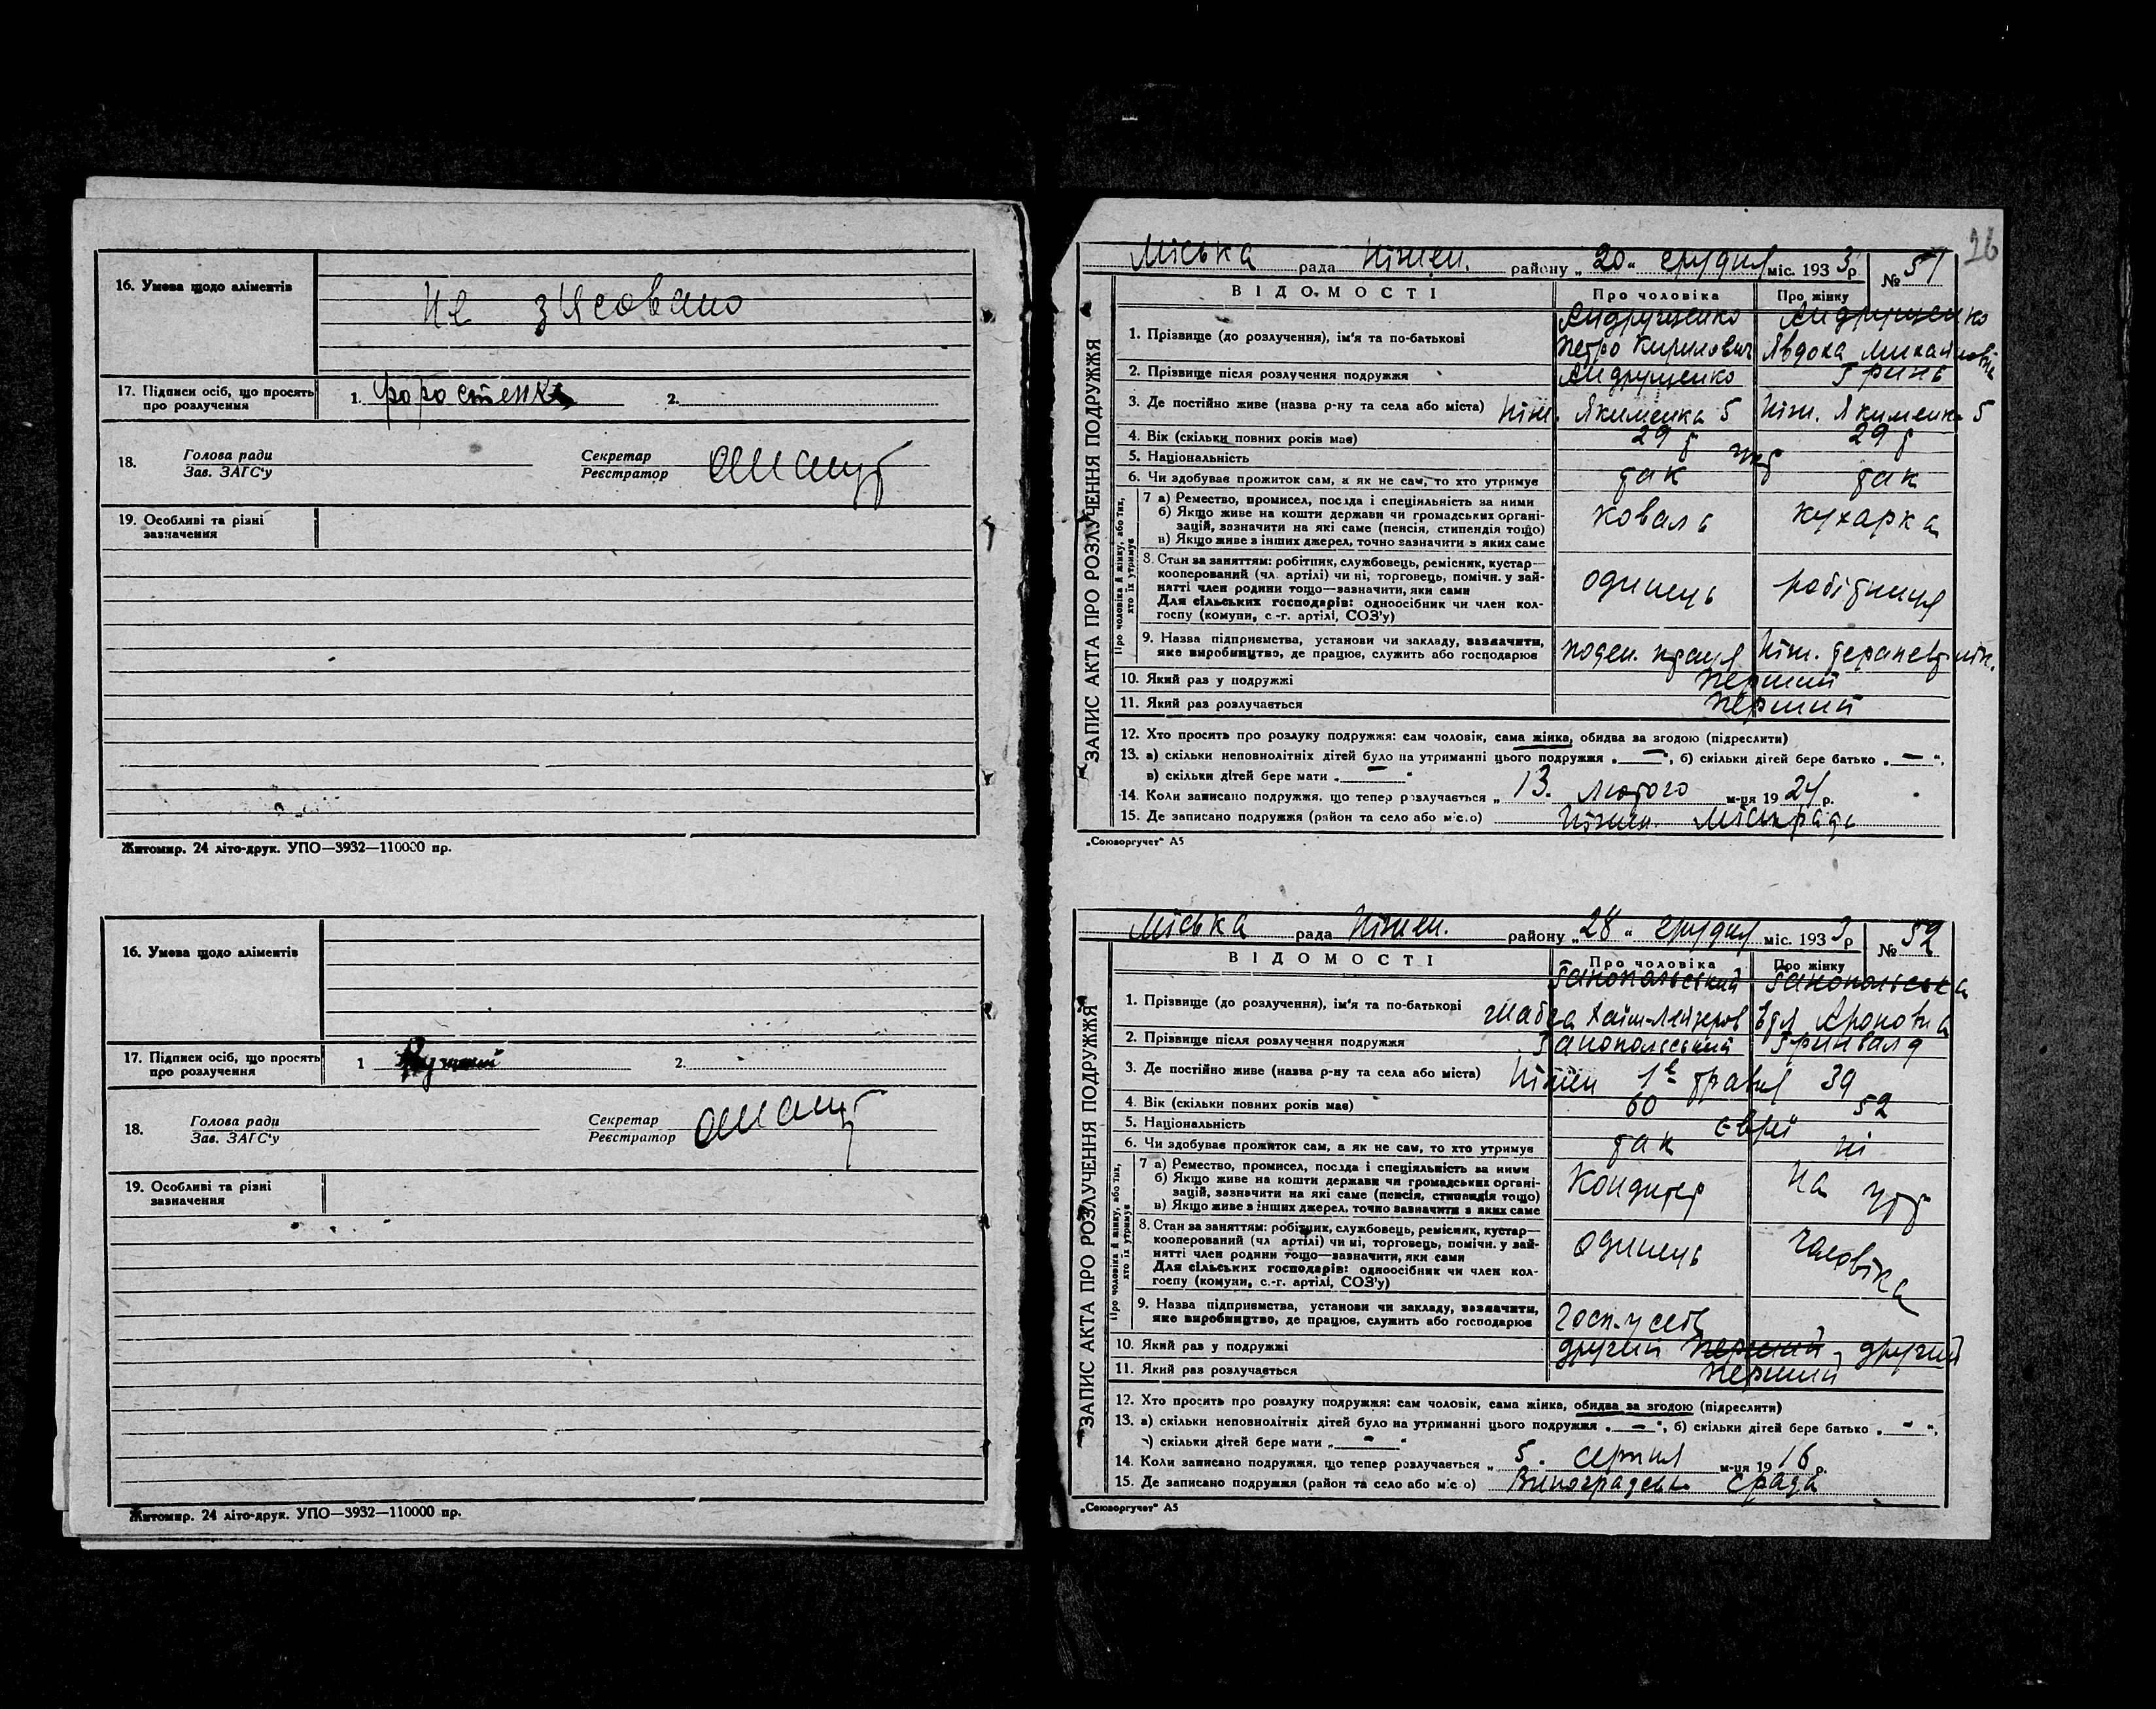 16. Умова щодо аліментів
не з'ясовано
17. Підписи осіб, що просять про розлучення 1. 2.
18. Голова ради Секретар
Зав. ЗАГС'у Реєстратор
19. Особливі та різні
зазначення
Житомир. 24 літо-друк. УПО—3932—110000 пр.
16. Умова щодо аліментів
17. Підписи осіб, що просять про розлучення 1 2.
18. Голова ради Секретар
Зав. ЗАГС'у Реєстратор
19. Особливі та різні
зазначення
Житомир. 24 літо-друк. УПО—3932—110000 пр.
26
ЗАПИС АКТА ПРО РОЗЛУЧЕННЯ ПОДРУЖЖЯ
Міська рада Ніжен. району „20“ грудня міс. 1933 р. № 51
ВІДОМОСТІ Про чоловіка Про жінку
Андрущенко Андрущенко
1. Прізвище (до розлучення), ім'я та по-батькові Петро Кирилович Явдоха Михайловна
2. Прізвище після розлучення подружжя Андрущенко Гринь
3. Де постійно живе (назва р-ну та села або міста) Ніж. Якименка 5 Ніж. Якименка 5
4. Вік (скільки повних років має) 29 р 29 р
5. Національність укр
6. Чи здобуває прожиток сам, а як не сам, то хто утримує так так
Про чоловіка й жінку, або тих, хто їх утримує
7 а) Ремество, промисел, посада і спеціяльність за ними
б) Якщо живе на кошти держави чи громадських органі-
зацій, зазначити на які саме (пенсія, стипендія тощо)
в) Якщо живе з інших джерел, точно зазначити з яких саме
коваль кухарка
8. Стан за заняттям: робітник, службовець, ремісник, кустар—
кооперований (чл. артілі) чи ні, торговець, помічн. у зай-
нятті член родини тощо—зазначити, яки сами
Для сільських господарів: одноосібник чи член кол-
госпу (комуни, с.-г. артілі, СОЗ'у)
одинець робітниця
9. Назва підприємства, установи чи закладу, зазначити,
яке виробництво, де працює, служить або господарює
поден. праця Ніж.
10. Який раз у подружжі Перший
11. Який раз розлучається Перший
12. Хто просить про розлуку подружжя: сам чоловік, сама жінка, обидва за згодою (підреслити)
13. а) скільки неповнолітніх дітей було на утриманні цього подружжя „—“, б) скільки дітей бере батько „—“,
в) скільки дітей бере мати „—“
14. Коли записано подружжя, що тепер розлучається „13. лютого м-ця 1924 р.
15. Де записано подружжя (район та село або місто) Ніжен. Міськрада
„Союзоргучет“ А5
ЗАПИС АКТА ПРО РОЗЛУЧЕННЯ ПОДРУЖЖЯ
Міська рада Ніжен. району „28“ грудня міс. 1933 р № 52
ВІДОМОСТІ Про чоловіка Про жінку
Ганопольський Ганопольська
1. Прізвище (до розлучення), ім'я та по-батькові Хаїм-Лейзеров Ароновна
2. Прізвище після розлучення подружжя Ганопольський Гринвалд
3. Де постійно живе (назва р-ну та села або міста) Ніжен 1е травня 39
4. Вік (скільки повних років має) 60 52
5. Національність Євреї
6. Чи здобуває прожиток сам, а як не сам, то хто утримує так ні
Про чоловіка й жінку, або тих, хто їх утримує
7 а) Ремество, промисел, посада і спеціяльність за ними
б) Якщо живе на кошти держави чи громадських органі-
зацій, зазначити на які саме (пенсія, стипендія тощо)
в) Якщо живе з інших джерел, точно зазначити з яких саме
Кондитер на утр
8. Стан за заняттям: робітник, службовець, ремісник, кустар—
кооперований (чл артілі) чи ні, торговець, помічн. у зай-
нятті член родини тощо—зазначити, яки сами
Для сільських господарів: одноосібник чи член кол-
госпу (комуни, с.-г. артілі, СОЗ'у)
одинець чаловіка
9. Назва підприємства, установи чи закладу, зазначити,
яке виробництво, де працює, служить або господарює
Госп. у себе
10. Який раз у подружжі другий Перший, другий
11. Який раз розлучається Перший
12. Хто просить про розлуку подружжя: сам чоловік, сама жінка, обидва за згодою (підреслити)
13. а) скільки неповнолітніх дітей було на утриманні цього подружжя „—“, б) скільки дітей бере батько „—“,
в) скільки дітей бере мати „—“
14. Коли записано подружжя, що тепер розлучається „5. серпня м-ця 1916 р.
15. Де записано подружжя (район та село або місто) Виноградськ. Єрада
„Союзоргучет“ А5